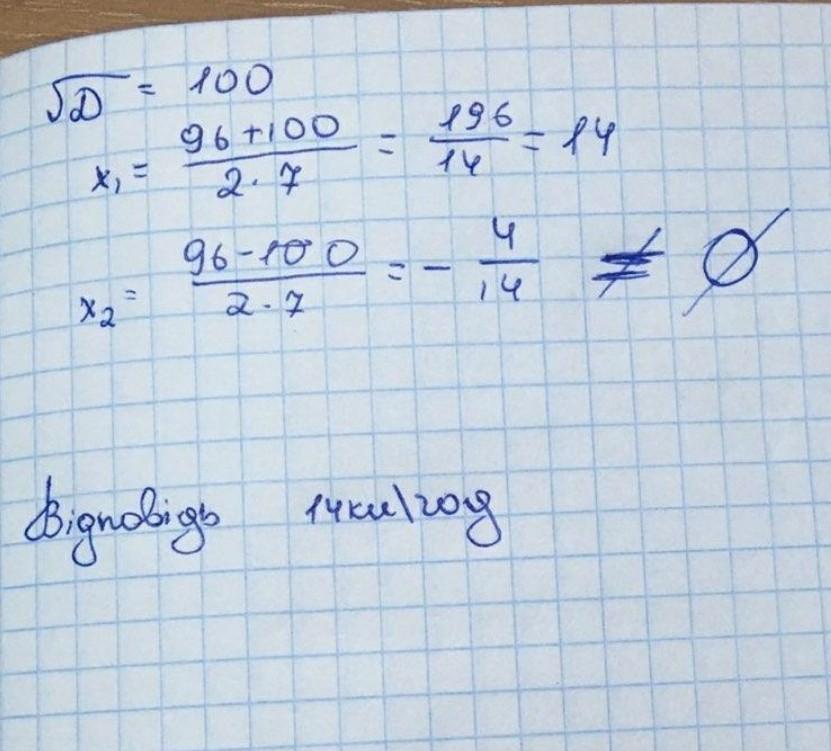 √D = 100
x₁ = (96+100)/(2·7) = 196/14 = 14
x₂ = (96-100)/(2·7) = - 4/14 ∅
Відповідь 14км\год